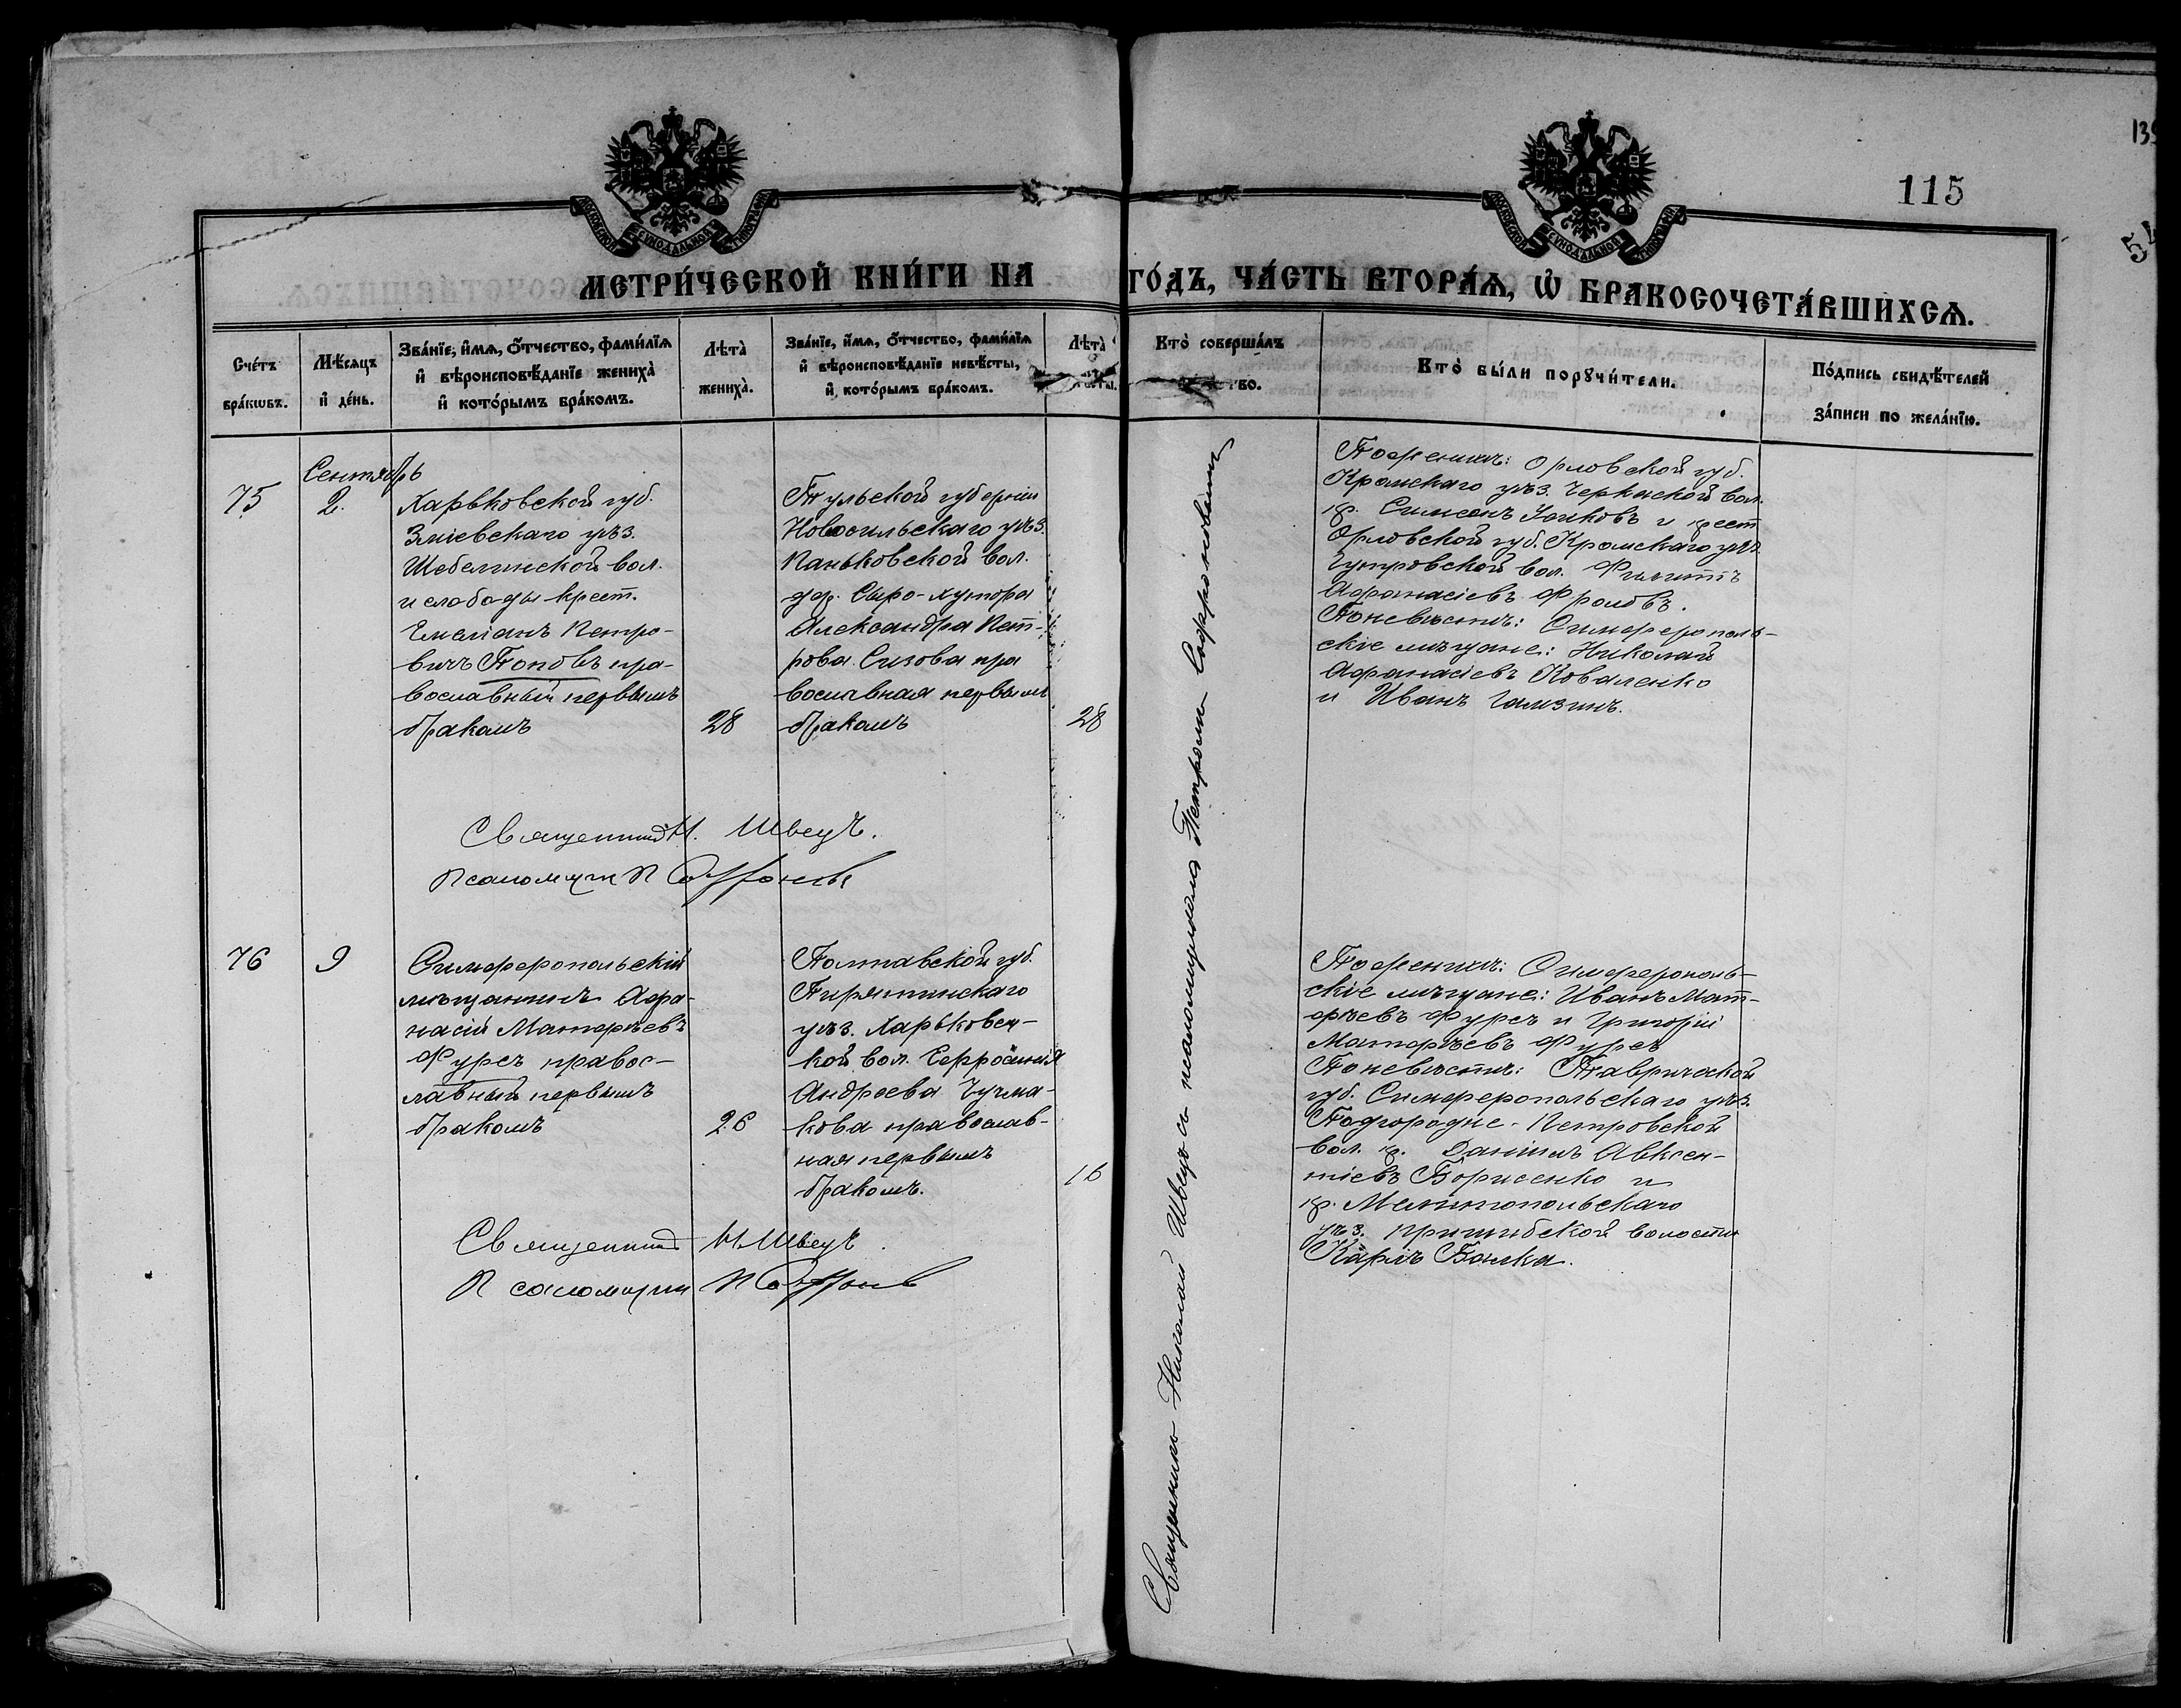 115
МЕТРИ́ЧЕСКОЙ КНИ́ГИ НА ГО́ДЪ, ЧА́СТЬ ВТОРА́Ѧ, Ѡ҆ БРАКОСОЧЕТА́ВШИХСѦ.
Сче́тъ бра́кѡвъ.
Мѣ́сѧцъ и҆ де́нь.
Зва́нїе, и҆́мѧ, ѻ҆́тчество, фами́лїѧ
и҆ вѣроисповѣ́данїе жениха̀
и҆ кото́рымъ бра́комъ.
Лѣта̀ жениха̀.
Зва́нїе, и҆́мѧ, ѻ҆́тчество, фами́лїѧ
и҆ вѣроисповѣ́данїе невѣ́сты,
и҆ кото́рымъ бра́комъ.
Лѣта̀
Кто̀ соверша́лъ
Кто̀ бы́ли порꙋчи́тели.
По́дпись свидѣ́телей
за́писи по жела́нїю.
Сентябрь
75
2.
Харьковской губ.
Зміевскаго уѣз.
Шебелинской вол.
и слободы крест.
Емеліанъ Петро-
вичъ Поповъ пра-
вославный первымъ
бракомъ
28
Тульской губерніи
Новосильскаго уѣз.
Паньковской вол.
дер. Сыро-хутора
Александра Пет-
рова Сизова пра
вославная первымъ
бракомъ
28
Священникъ Николай Швецъ съ псаломщикомъ Петромъ Софроновымъ
По женихѣ: Орловской губ.
Кромскаго уѣз. Черкаской вол.
кр. Симеонъ и крест
Орловской губ. Кромскаго уѣз.
вол. Филиппъ
Афанасіевъ Фроловъ.
По невѣстѣ: Симферополь-
скіе мѣщане: Николай
Афанасіевъ Коваленко
и Иванъ Гамзинъ.
Священникъ Н. Швецъ.
Псаломщик П Софроновъ
76
9
Симферопольскій
мѣщанинъ Афа-
насій Матфѣевъ
Фурсъ правос-
лавный первымъ
бракомъ
26
Полтавской губ.
Пирятинскаго
уѣз. Харьковск-
кой вол. Евфросинія
Андреева Чучма-
кова православ-
ная первымъ
бракомъ.
16
По женихѣ: Симферополь-
скіе мѣщане: Иванъ Мат-
фѣевъ Фурсъ и Григорій
Матфѣевъ Фурсъ
По невѣстѣ: Таврической
губ. Симферопольскаго уѣз.
Подгородне-Петровской
вол. кр. Даніилъ Авксен-
тіевъ Борисенко и
кр. Мелитопольскаго
уѣз. Пришибской волости
Карлъ Балка.
Священник Н. Швецъ.
Псаломщик П Софронов